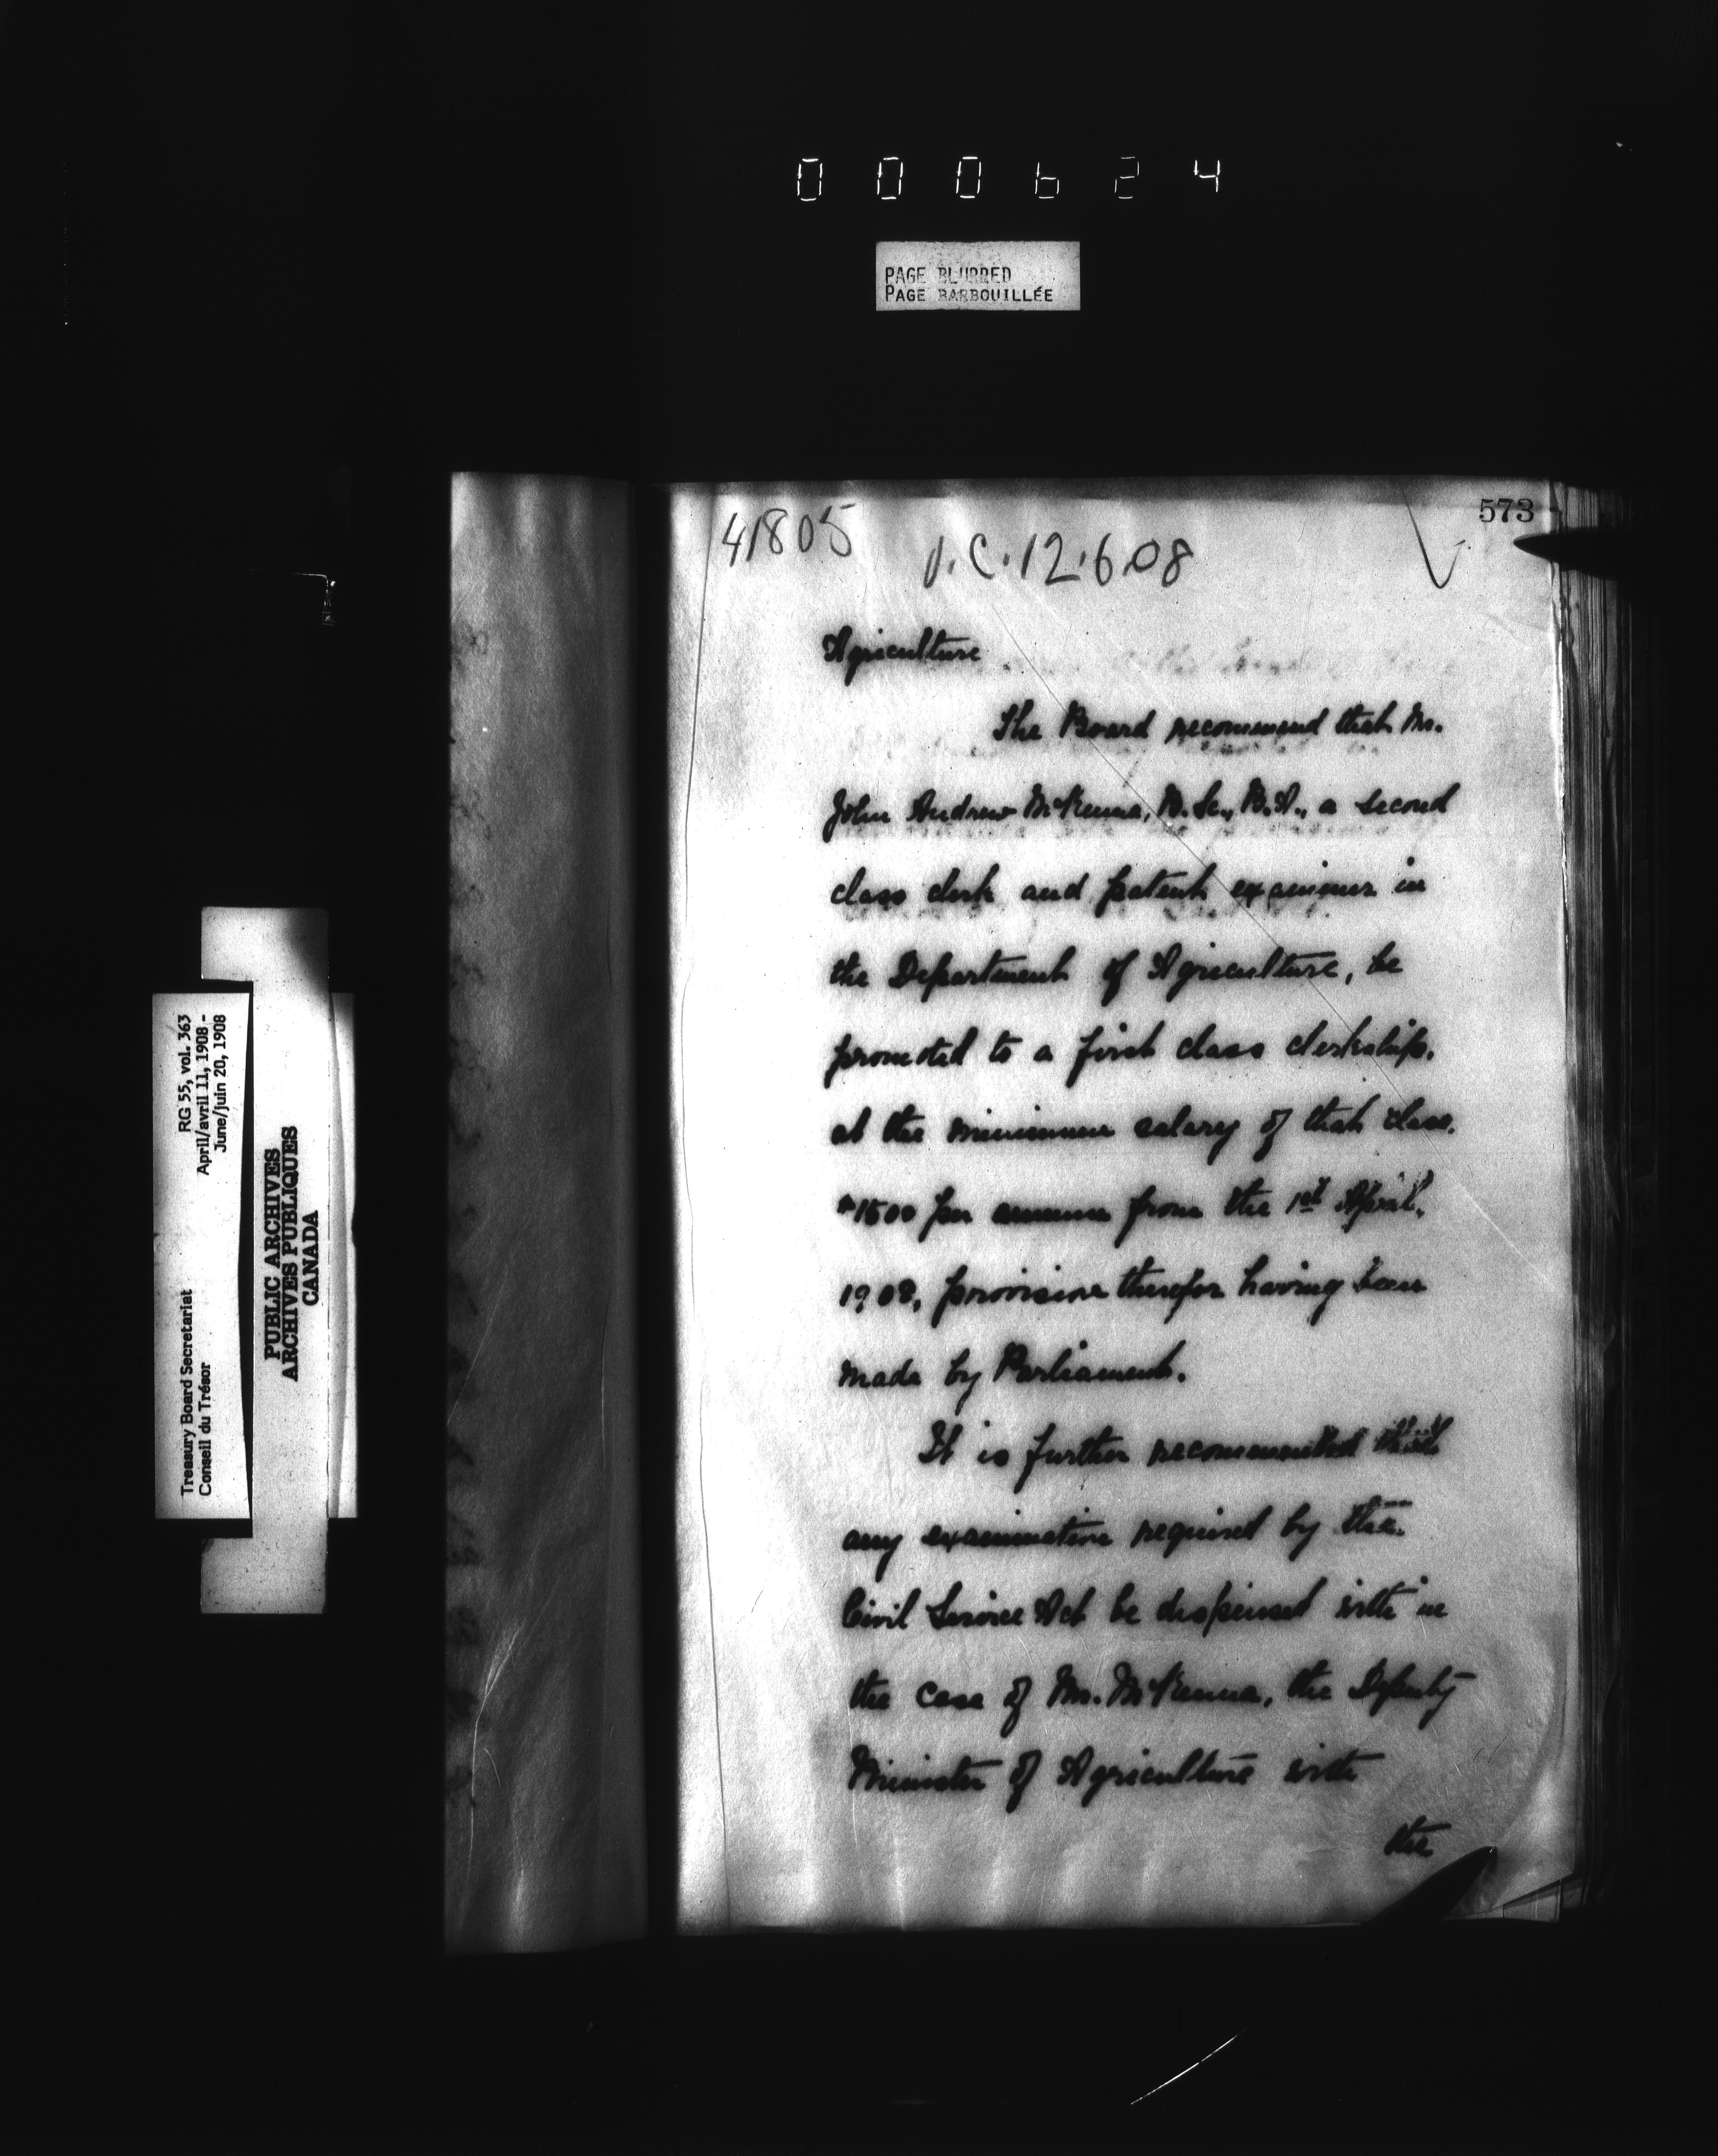 000624
PAGE BLURRED
PAGE BARBOUILLÉE
573
41805
P.C. 12.6.08
Agriculture
The Board recommend that Mr.
John Andrew McKenna, B.Sc., B.A., a second
class clerk and patent examiner in
the Department of Agriculture, be
promoted to a first class clerkship,
at the minimum salary of that class,
$1500 per annum from the 1st April,
1908, provision therefor having been
made by Parliament.
It is further recommended that
any examination required by the
Civil Service Act be dispensed with in
the case of Mr. McKenna, the Deputy
Minister of Agriculture with
the
Treasury Board Secretariat
Conseil du Trésor
RG 55, vol. 363
April/avril 11, 1908 -
June/juin 20, 1908
PUBLIC ARCHIVES
ARCHIVES PUBLIQUES
CANADA